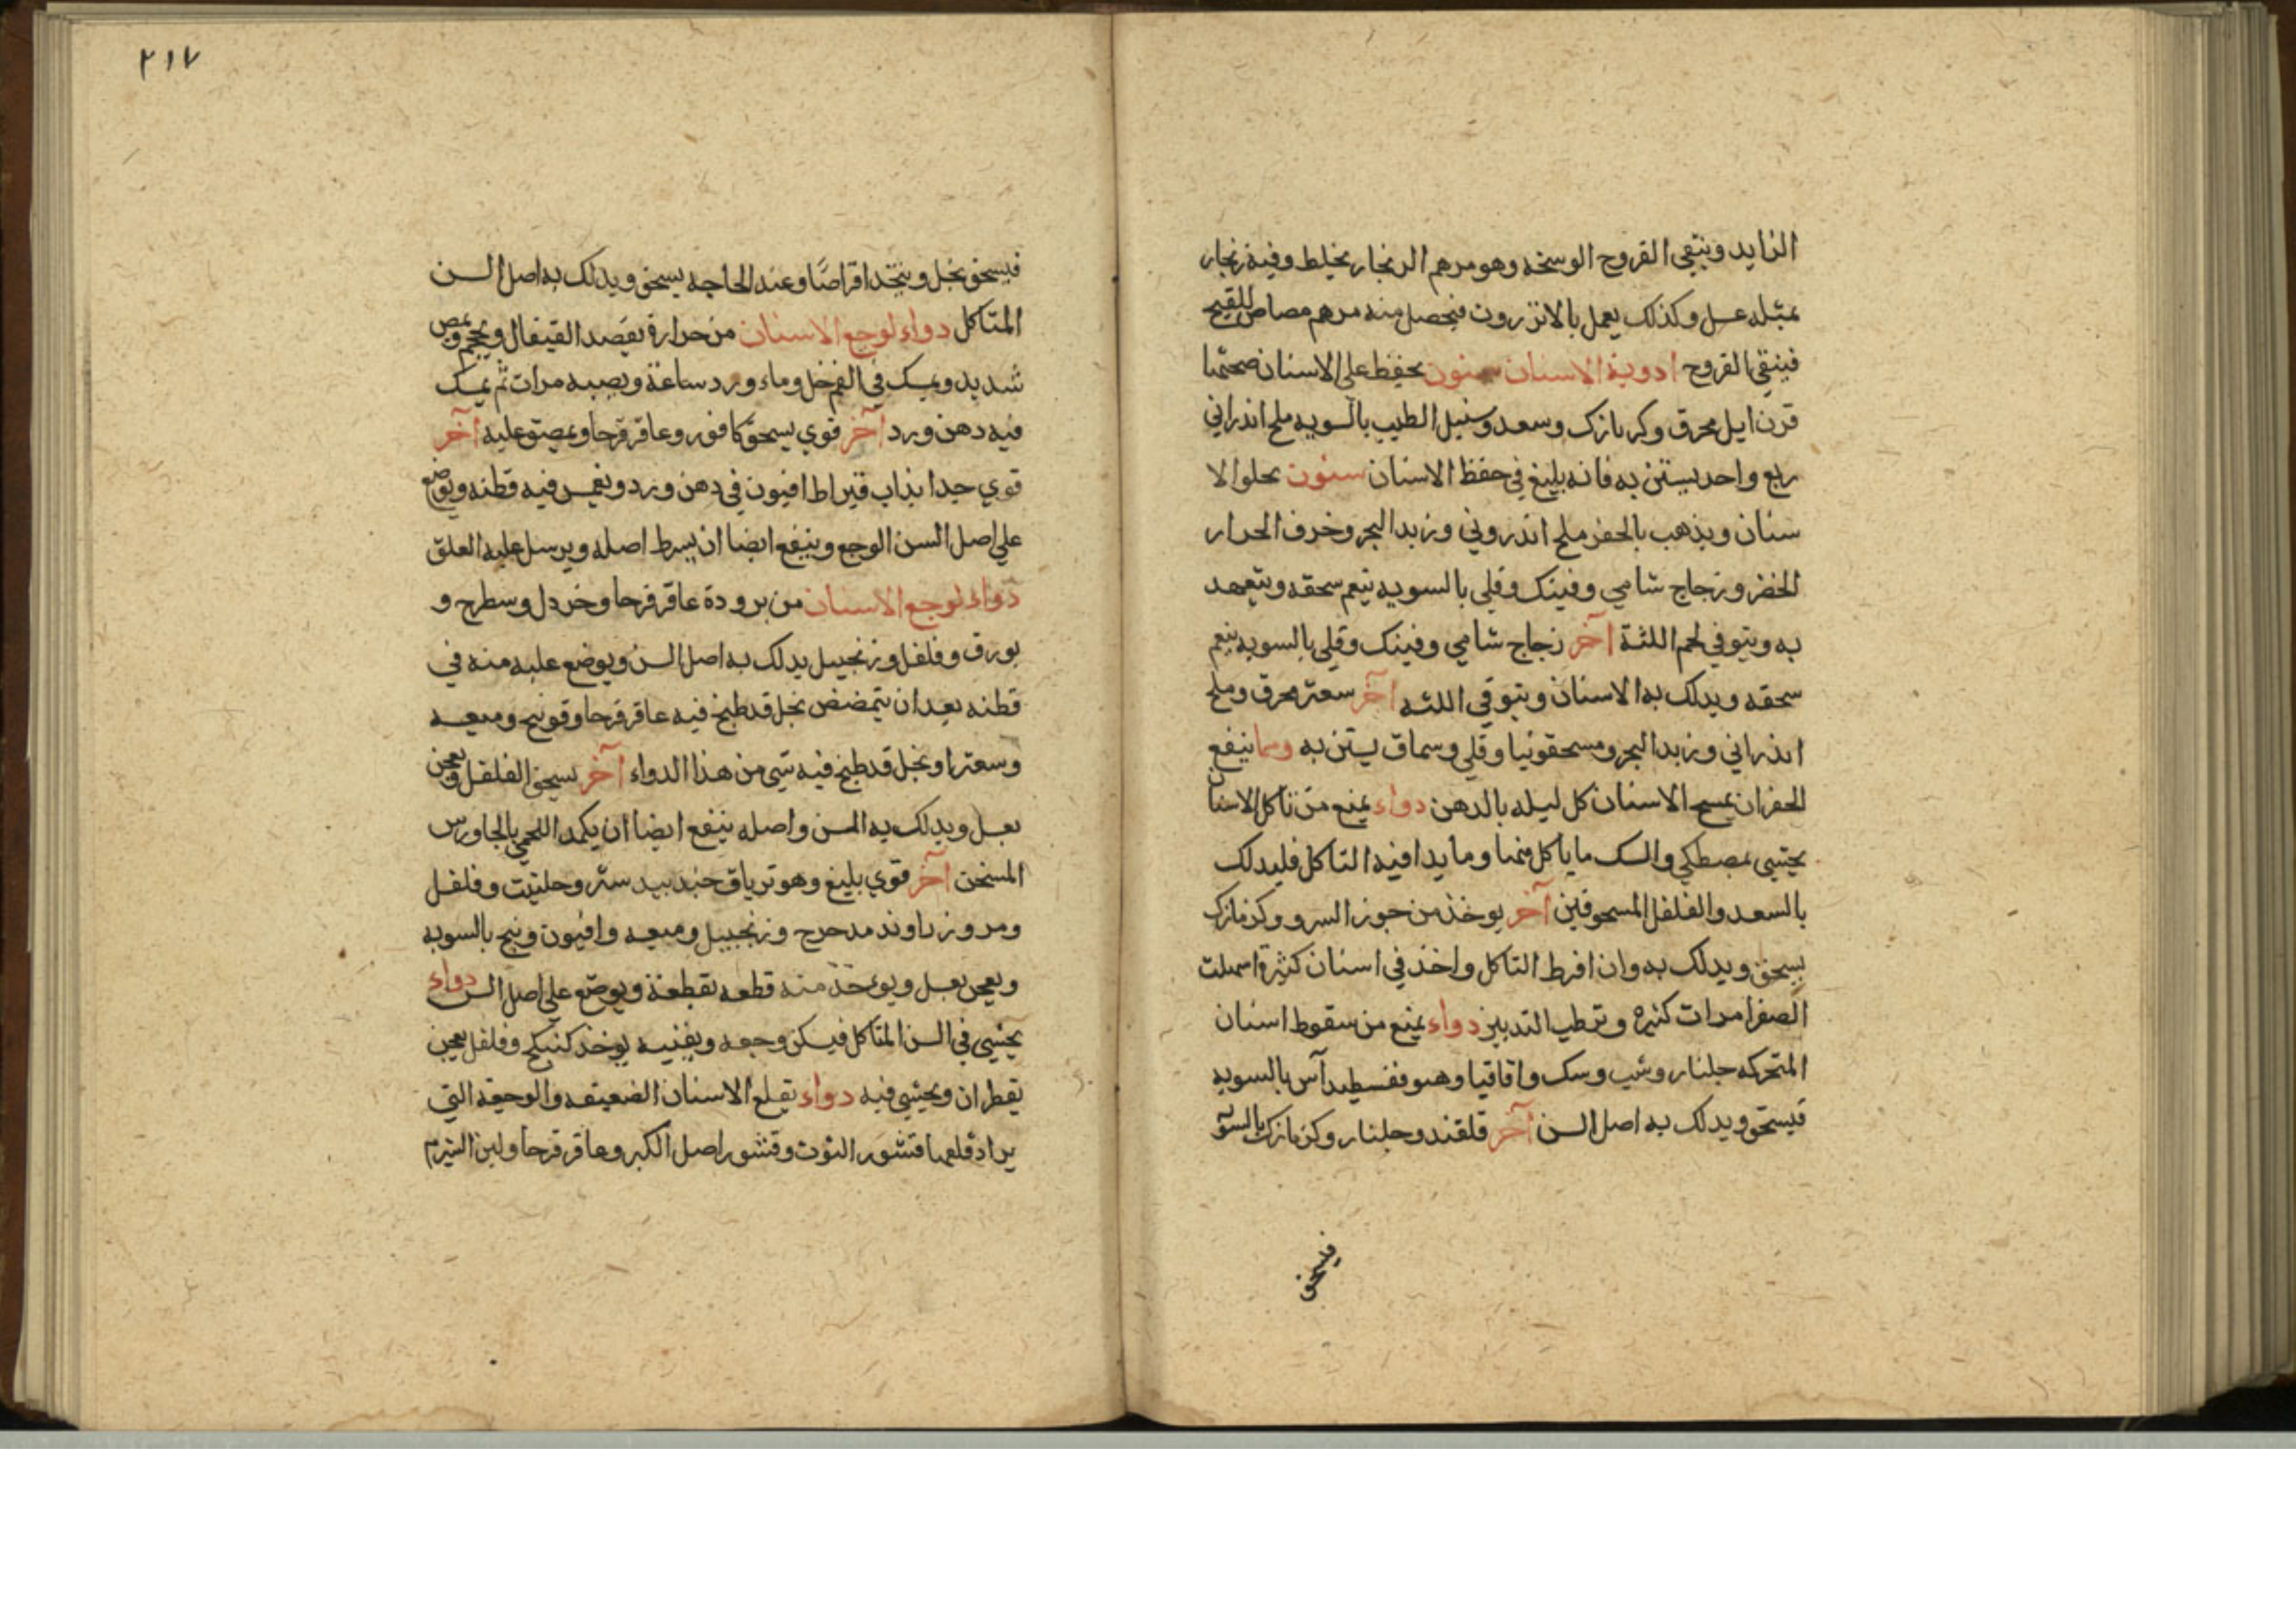 الزايد وينقي القروح الوسخه وهو مرهم الزنجار بخليط وفيه زنجار
بمثله عسل وكذلك يعمل بالانزروت فيحصل منه مرهم مصاص للقيح
فينقي القروح ادوية الاسنان سنون يحفظ علي الاسنان صحتها
قرن ايل محرق وكزمازك وسعد وسنبل الطيب بالسويه ملح اندراني
ربع واحد يستن به فانه بليغ في حفظ الاسنان سنون يجلوا الا
سنان ويذهب بالحفر ملح اندروني وزبد البحر وخزف الجرار
الخضر وزجاج شامي وفينك وقلي بالسويه ينعم سحقه ويتعهد
به ويتوقي لحم اللثة آخر زجاج شامي وفينك وقلي بالسويه ينعم
سحقه ويدلك به الاسنان ويتوقي اللثه آخر سعتر محرق وملح
اندراني وزبد البحر ومسحقونيا وقلي وسماق يستن به ومما ينفع
الحفر ان يمسح الاسنان كل ليله بالدهن دواء يمنع من تاكل الاسنان
يحشي بمصطكي والسك ما ياكل منها وما يدا فيه التاكل فليدلك
بالسعد والفلفل المسحوقين آخر يوخذ من جوز السرو وكزمازك
يسحق ويدلك به وان افرط التاكل واخذ في اسنان كثيرة اسهلت
الصفرا مرات كثيره وترطب التدبير دواء يمنع من سقوط اسنان
المتحركه جلنار وشب وسك واقاقيا وهيوفقسطيدآس بالسويه
فيسحق ويدلك به اصل السن آخر قلقند وجلنار وكزمازك بالسوية
فيسحق
٢١٧
فيسحق بخل ويتخد اقراصًا وعند الحاجه يسحق ويدلك به اصل السن
المتاكل دواء لوجع الاسنان من حرارة يفصد القيفال ويحجم ويمص
شديد ويمسك في الفم خل وماء ورد ساعة ويصبه مرات ثم يمسك
فيه دهن ورد آخر قوي يسحق كافور وعاقرقرحا ويمصق عليه آخر
قوي جدا يذاب قيراط افيون في دهن ورد ويغمس فيه قطنه ويوضع
علي اصل السن الوجع وينفع ايضا ان يشرط اصله ويرسل عليه العلق
دواء لوجع الاسنان من برودة عاقرقرحا وخردل وسطرج و
بورق وفلفل وزنجبيل يدلك به اصل السن ويوضع عليه منه في
قطنه بعد ان يتمضمض بخل قد طبخ فيه عاقرقرحا وفوتنج وميعه
وسعتر او بخل قد طبخ فيه شي من هذا الدواء آخر يسحق الفلفل ويعجن
بعسل ويدلك به السن واصله ينفع ايضا ان يكمد اللحي بالجاورس
المسخن آخر قوي بليغ وهو ترياق جندبيدستر وحلتيت وفلفل
ومر وزراوند مدحرج وزنجبيل وميعه وافيون وبنج بالسويه
ويعجن بعسل ويوخذ منه قطعه بقطنة ويوضع علي اصل السن دواء
يحشي في السن المتاكل فيسكن وجعه ويفنيه يوخذ كبيكج وفلفل يعجن
بقطران ويحشي فيه دواء يقلع الاسنان الضعيفه والوجعه التي
يراد قلعها قشور التوت وقشور اصل الكبر وعاقرقرحا ولبن الشبرم